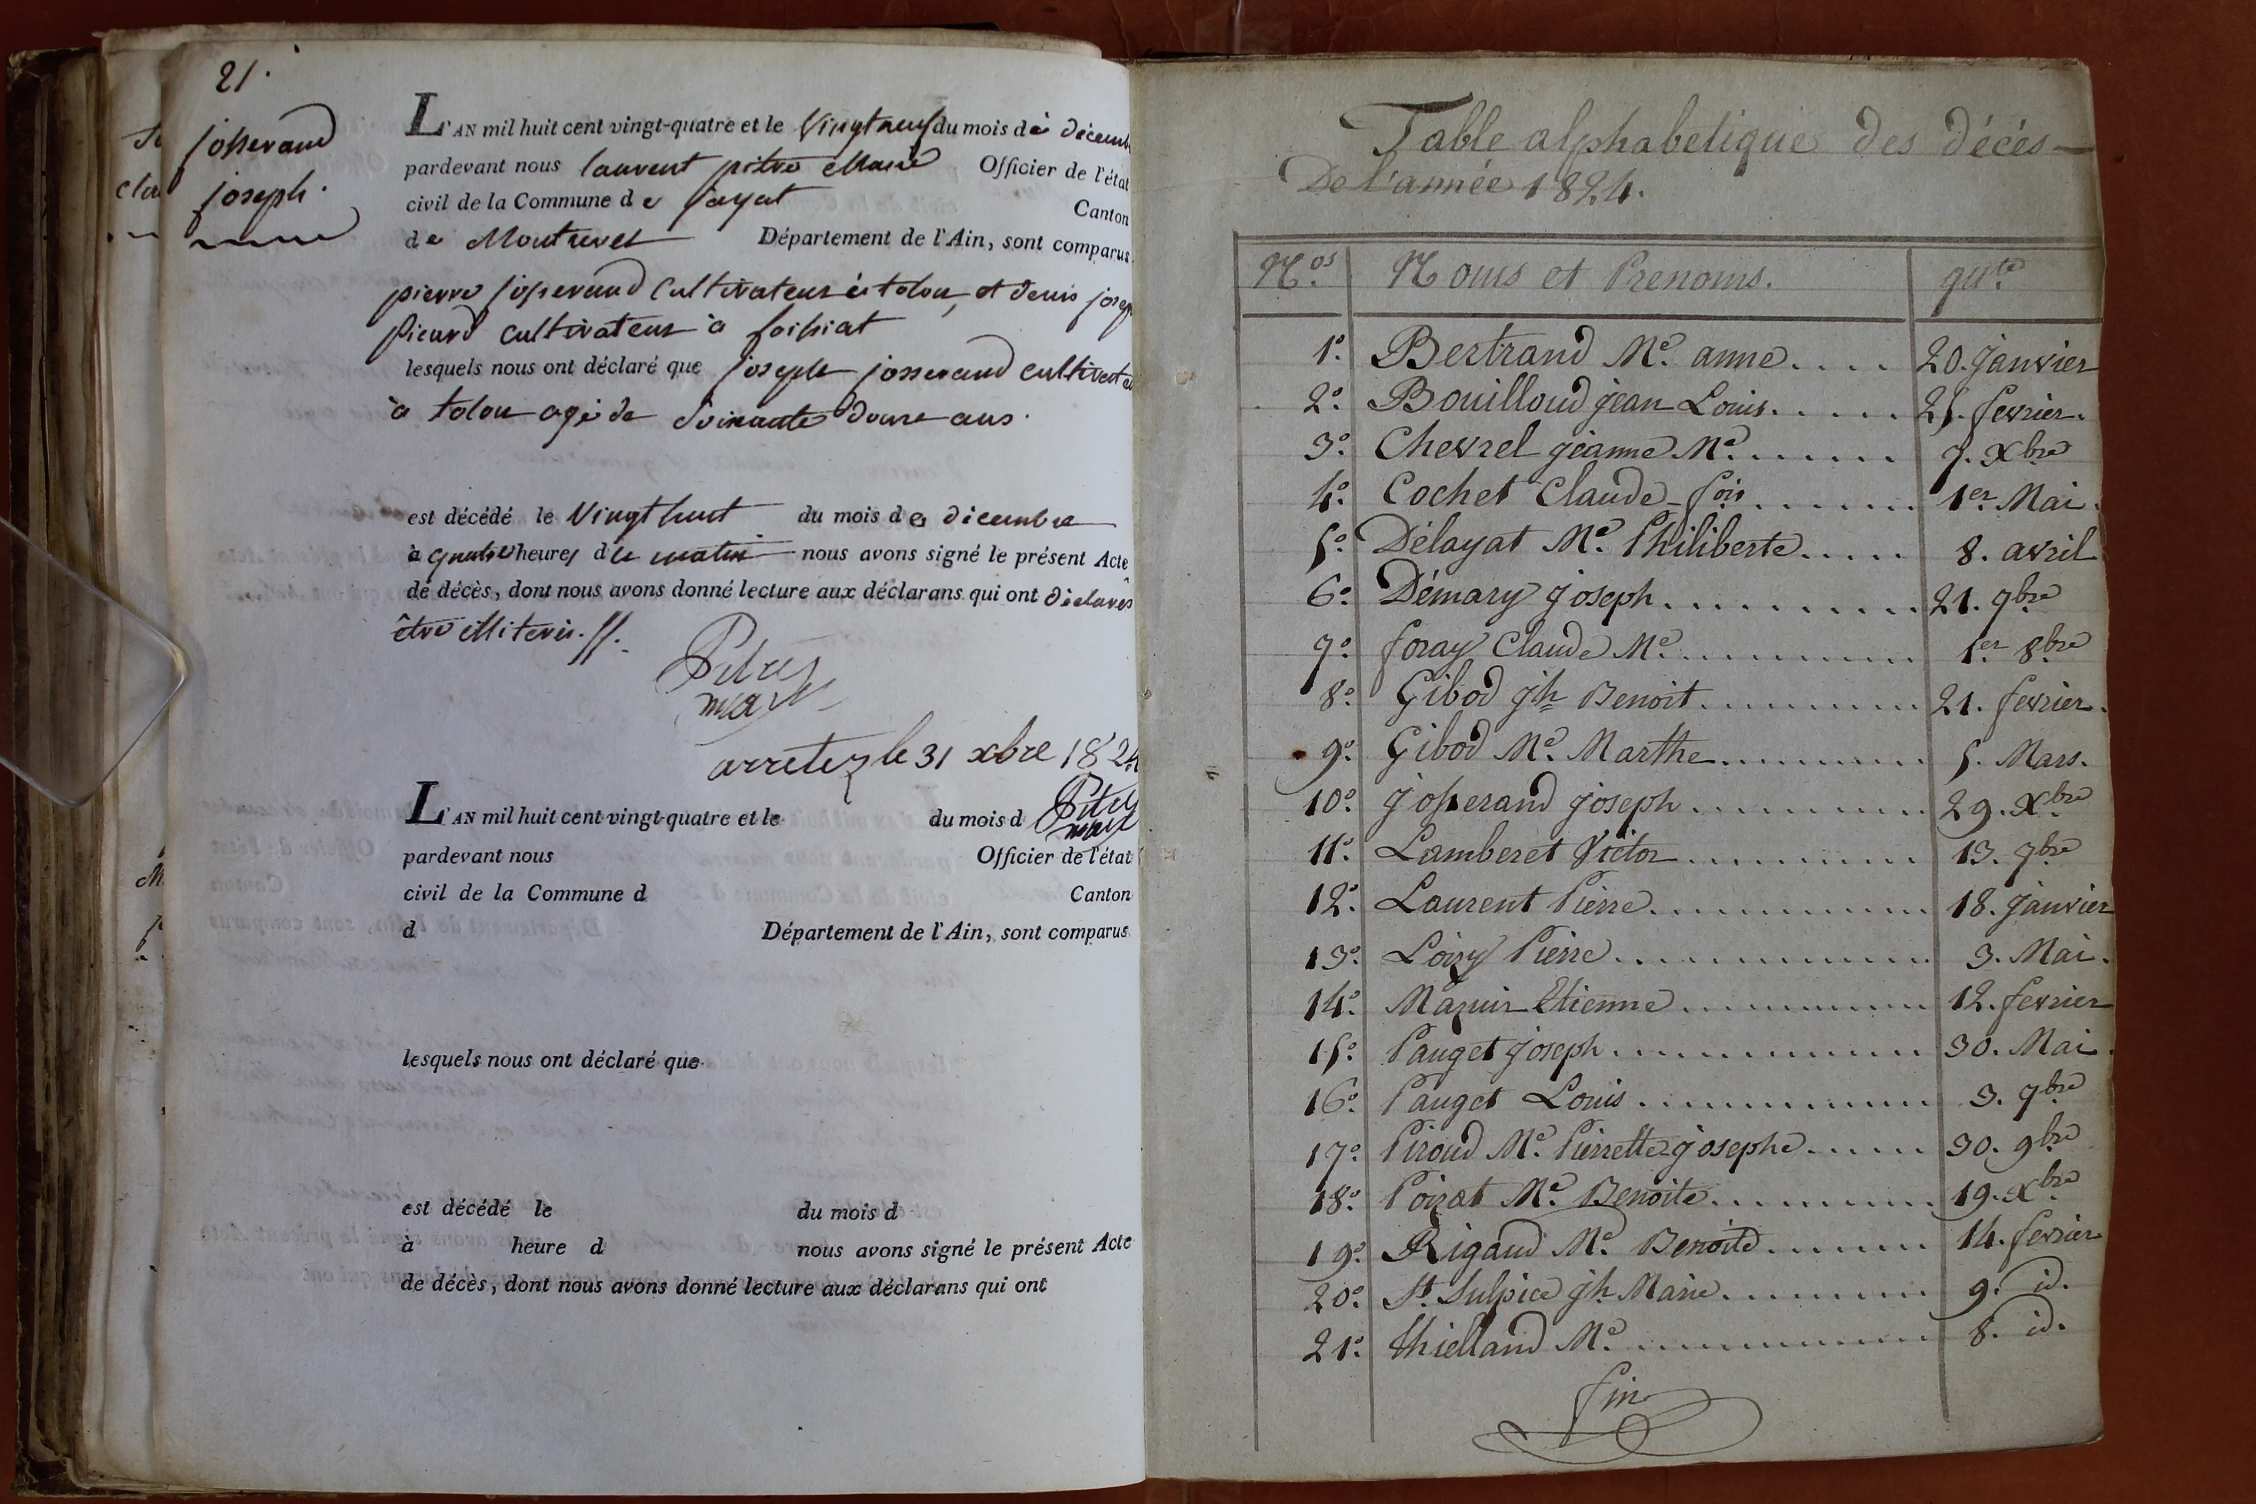 21.
josserand
joseph.
L'AN mil huit cent vingt-quatre et le Vingt neuf du mois de décemb
pardevant nous laurent pitre Maire Officier de l'état
civil de la Commune de jayat Canton
de Montrevel Département de l'Ain, sont comparus
pierre josserand Cultivateur à tolou, et denis josep
picard cultivateur à foissiat
lesquels nous ont déclaré que joseph josserand cultivateu
à tolou agé de Soixante douze ans.
est décédé le Vingt huit du mois de décembre
à quatre heures du matin nous avons signé le présent Acte
de décès, dont nous avons donné lecture aux déclarans qui ont déclarés
être illiterés.
Pitre
maire
arretez le 31 xbre 1824
Pitre
maire
L'AN mil huit cent vingt-quatre et le du mois d
pardevant nous Officier de l'état
civil de la Commune d Canton
d Département de l'Ain, sont comparus
lesquels nous ont déclaré que
est décédé le du mois d
à heure d nous avons signé le présent Acte
de décès, dont nous avons donné lecture aux déclarans qui ont
Table alphabetique des décès
De l'année 1824.
Nos. Noms et Prenoms.
1º. Bertrand Me. anne..... 20. janvier
2º. Bouilloud jean Louis...... 25. fevrier.
3º. Chevrel jeanne Me....... 7. Xbre
4º. Cochet Claude-fois....... 1er Mai.
5º. Délayat Me. Philiberte..... 8. avril
6º. Démary joseph.......... 21. 9bre
7º. foray Claude Me.......... 1er 8bre
8º. Gibod jh Benoit......... 21. fevrier.
9º. Gibod Me. Marthe......... 5. Mars.
10º. josserand joseph......... 29. Xbre
11º. Lamberet Victor......... 13. 7bre
12º. Laurent Pierre.......... 18. janvier
13º. Loizy Pierre............ 3. Mai.
14º. Mazuir Etienne.......... 12. fevrier
15º. Pauget joseph........... 30. Mai.
16º. Pauget Louis........... 3. 7bre
17º. Piroud Me. Pierrette josephe..... 30. 9bre
18º. Poizat Me. Benoite........ 19. Xbre
19º. Rigaud Me. Benoite...... 14. fevrier
20º. St. Sulpice jh. Marie........ 9. id.
21º. thielland Me............ 8. id.
fin